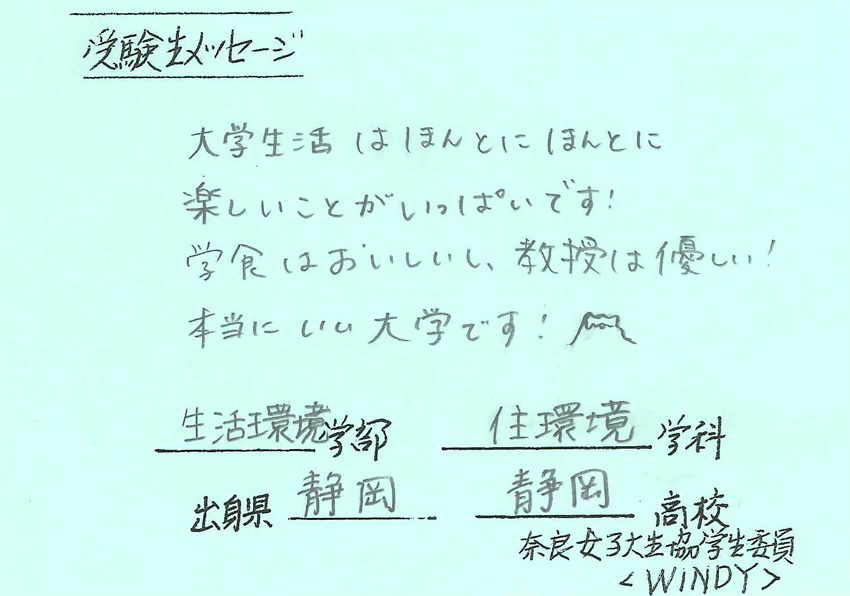 受験生メッセージ
大学生活はほんとにほんとに
楽しいことがいっぱいです!
学食はおいしいし、教授は優しい!
本当にいい大学です!
生活環境学部 住環境学科
出身県 静岡 静岡高校
奈良女子大生協学生委員
<WiNDY>